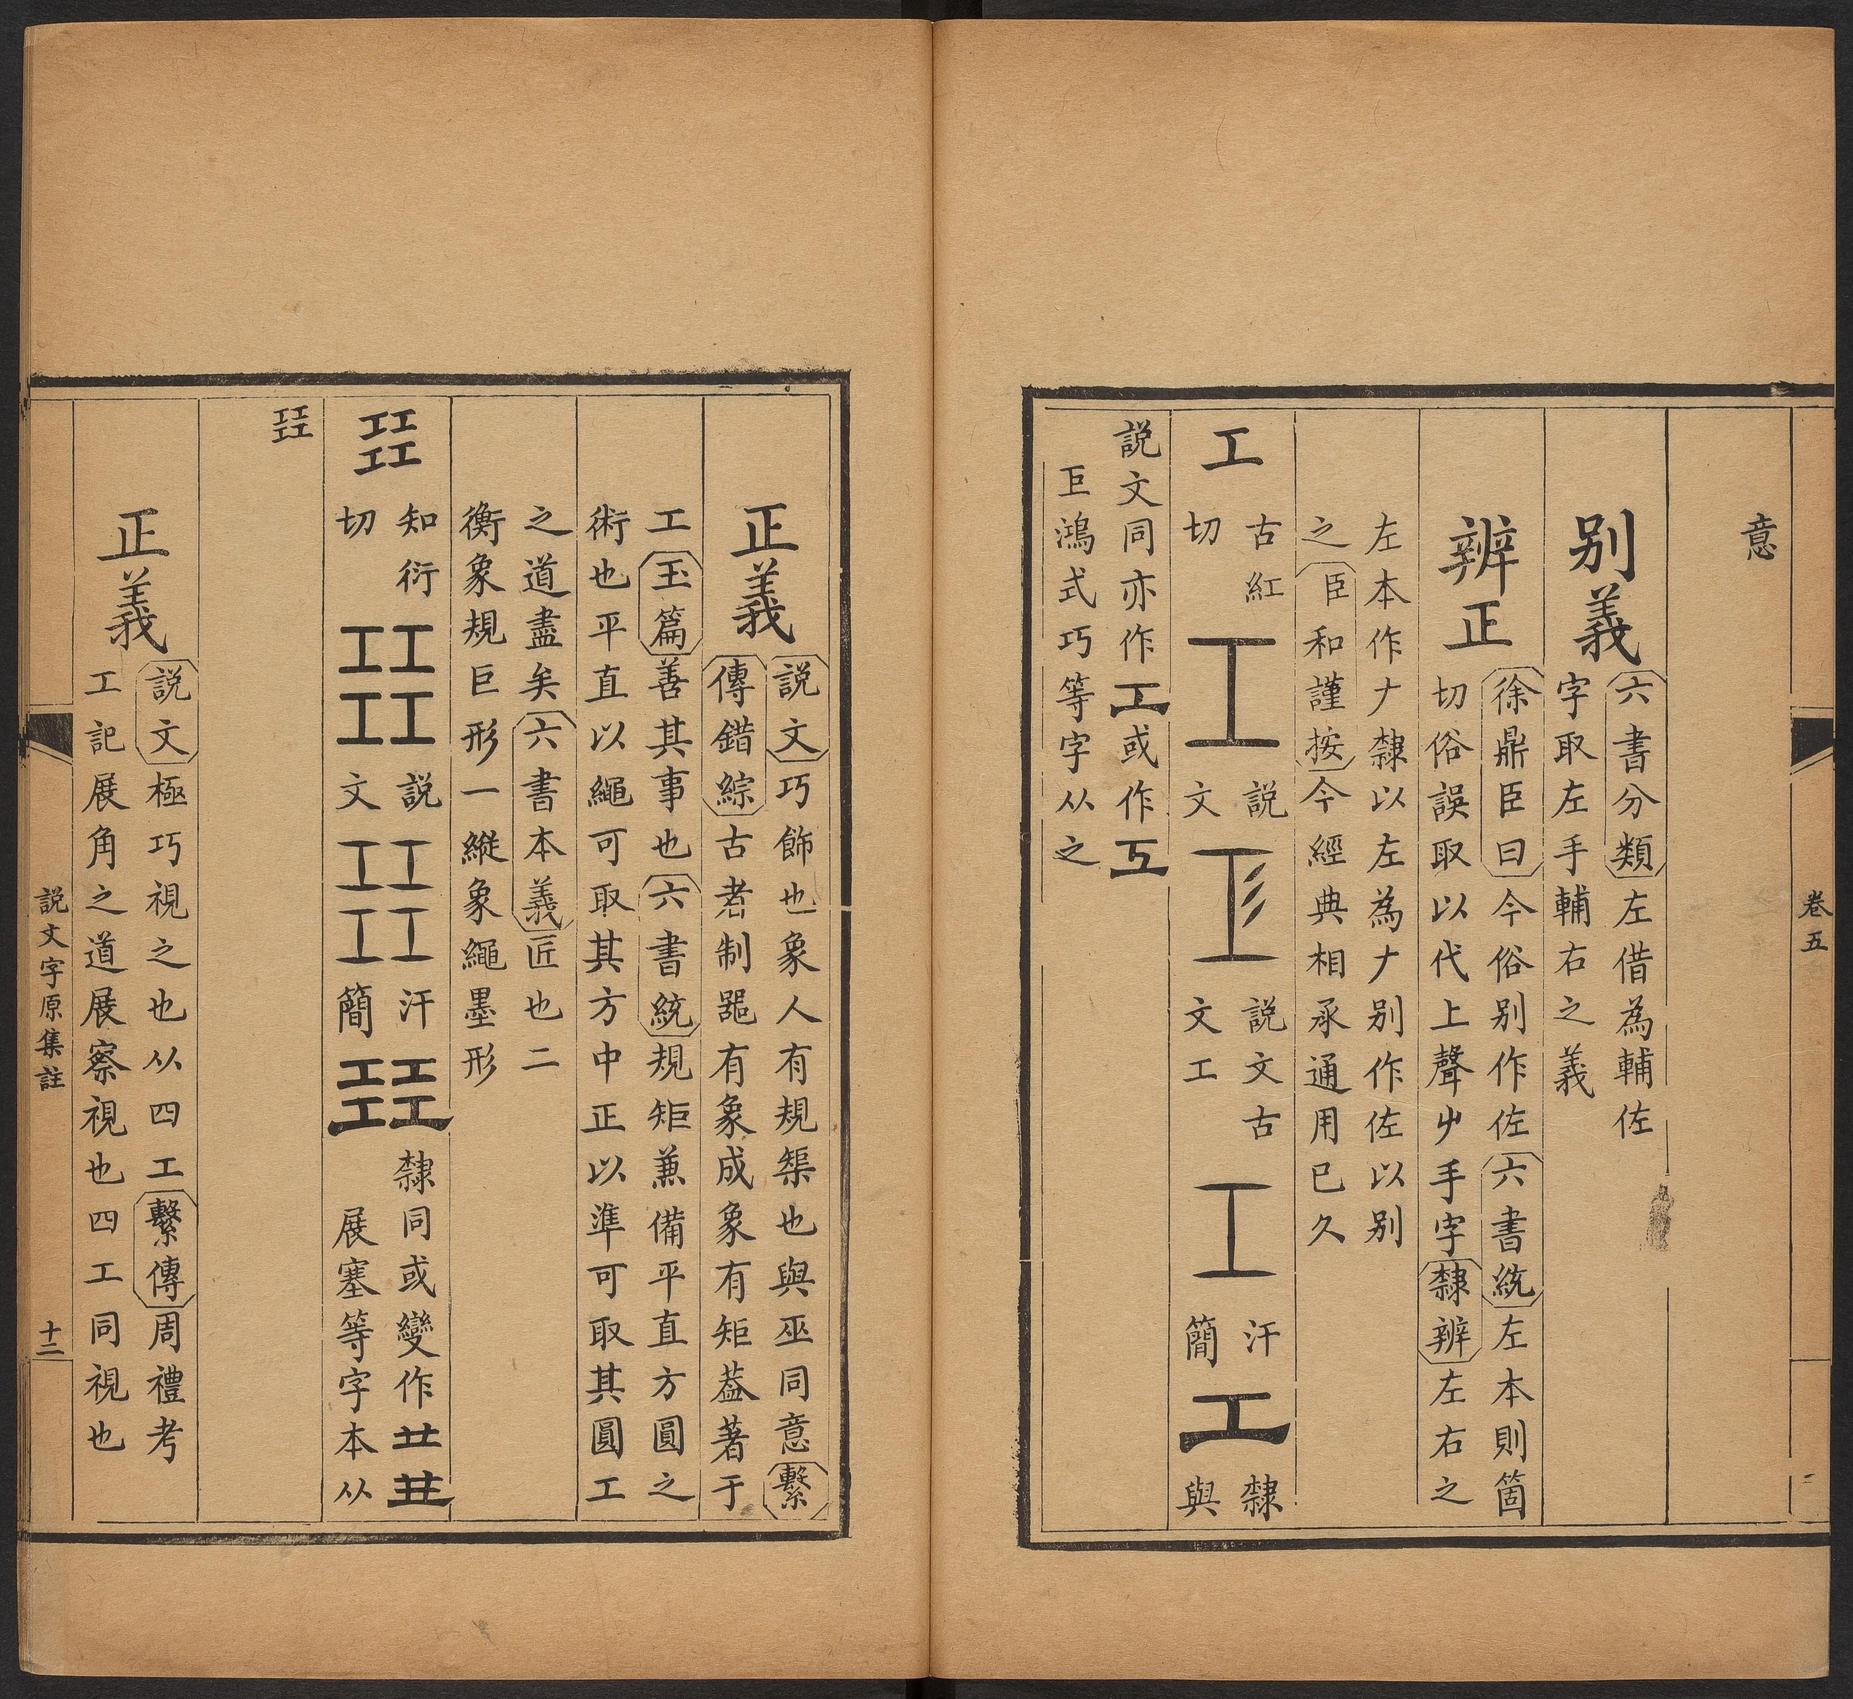 卷五
意
别義
六書分類左借為輔佐
字取左手輔右之義
辨正
徐鼎臣曰今俗别作佐六書統左本則箇
切俗誤取以代上聲屮手字隸辨左右之
左本作𠂇隸以左為𠂇别作佐以别
之臣和謹按今經典相承通用已久
工
古紅
切
工
說
文
𢒄
說文古
文工
工
汗
簡
工
隸
與
說文同亦作工或作
巨鴻式巧等字从之
正義
說文巧飾也象人有規榘也與巫同意繫
傳錯綜古者制器有象成象有矩葢著于
工玉篇善其事也六書統規矩兼備平直方圓之
術也平直以繩可取其方中正以準可取其圓工
之道盡矣六書本義匠也二
衡象規巨形一縱象繩墨形
㠭
知衍
切
㠭
說
文
㠭
汗
簡
㠭
隸同或變作
展塞等字本从
㠭
正義
說文極巧視之也从四工繫傳周禮考
工記展角之道展察視也四工同視也
說文字原集註
十二